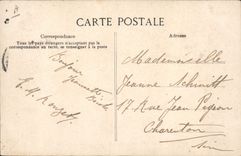 CARTE POSTALE
Correspondance
Tous les pays étrangers n'acceptent pas la
correspondance au recto, se renseigner à la poste
Adresse
Bonjour
Mademoiselle
Jeanne Schmitt
17 Rue Jean Pigeon
Charenton
Seine